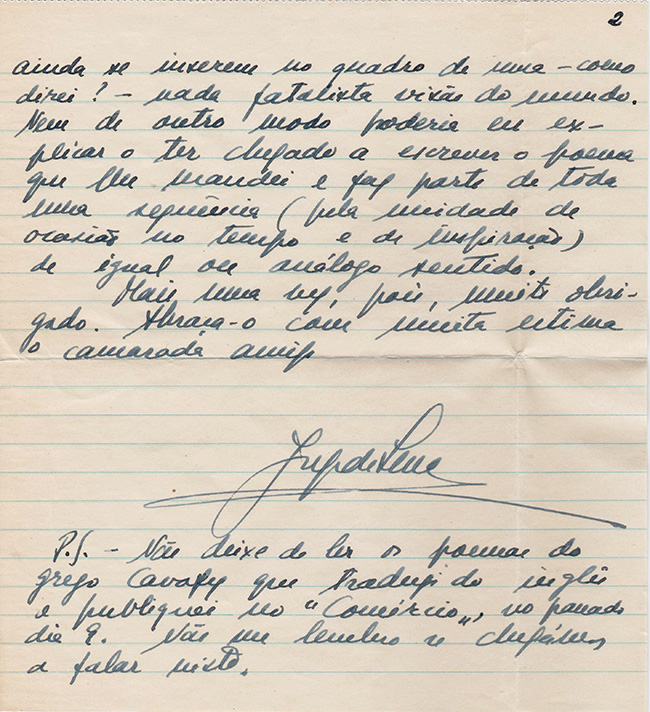 2
ainda se inserem no quadro de uma – como
direi? – nada fatalista visão do mundo.
Nem de outro modo poderia eu ex-
plicar o ter chegado a escrever o poema
que lhe mandei e faz parte de toda
uma sequência (pela unidade de
ocasião no tempo e de inspiração)
de igual ou análogo sentido.
Mais uma vez, pois, muito obri-
gado. Abraça-o com muita estima
o camarada amigo
Jorge de Sena
P.S. – Não deixe de ler os poemas do
grego Cavafy que traduzi do inglês
e publiquei no "Comércio", no passado
dia 9. Não me lembro se chegámos
a falar nisto.